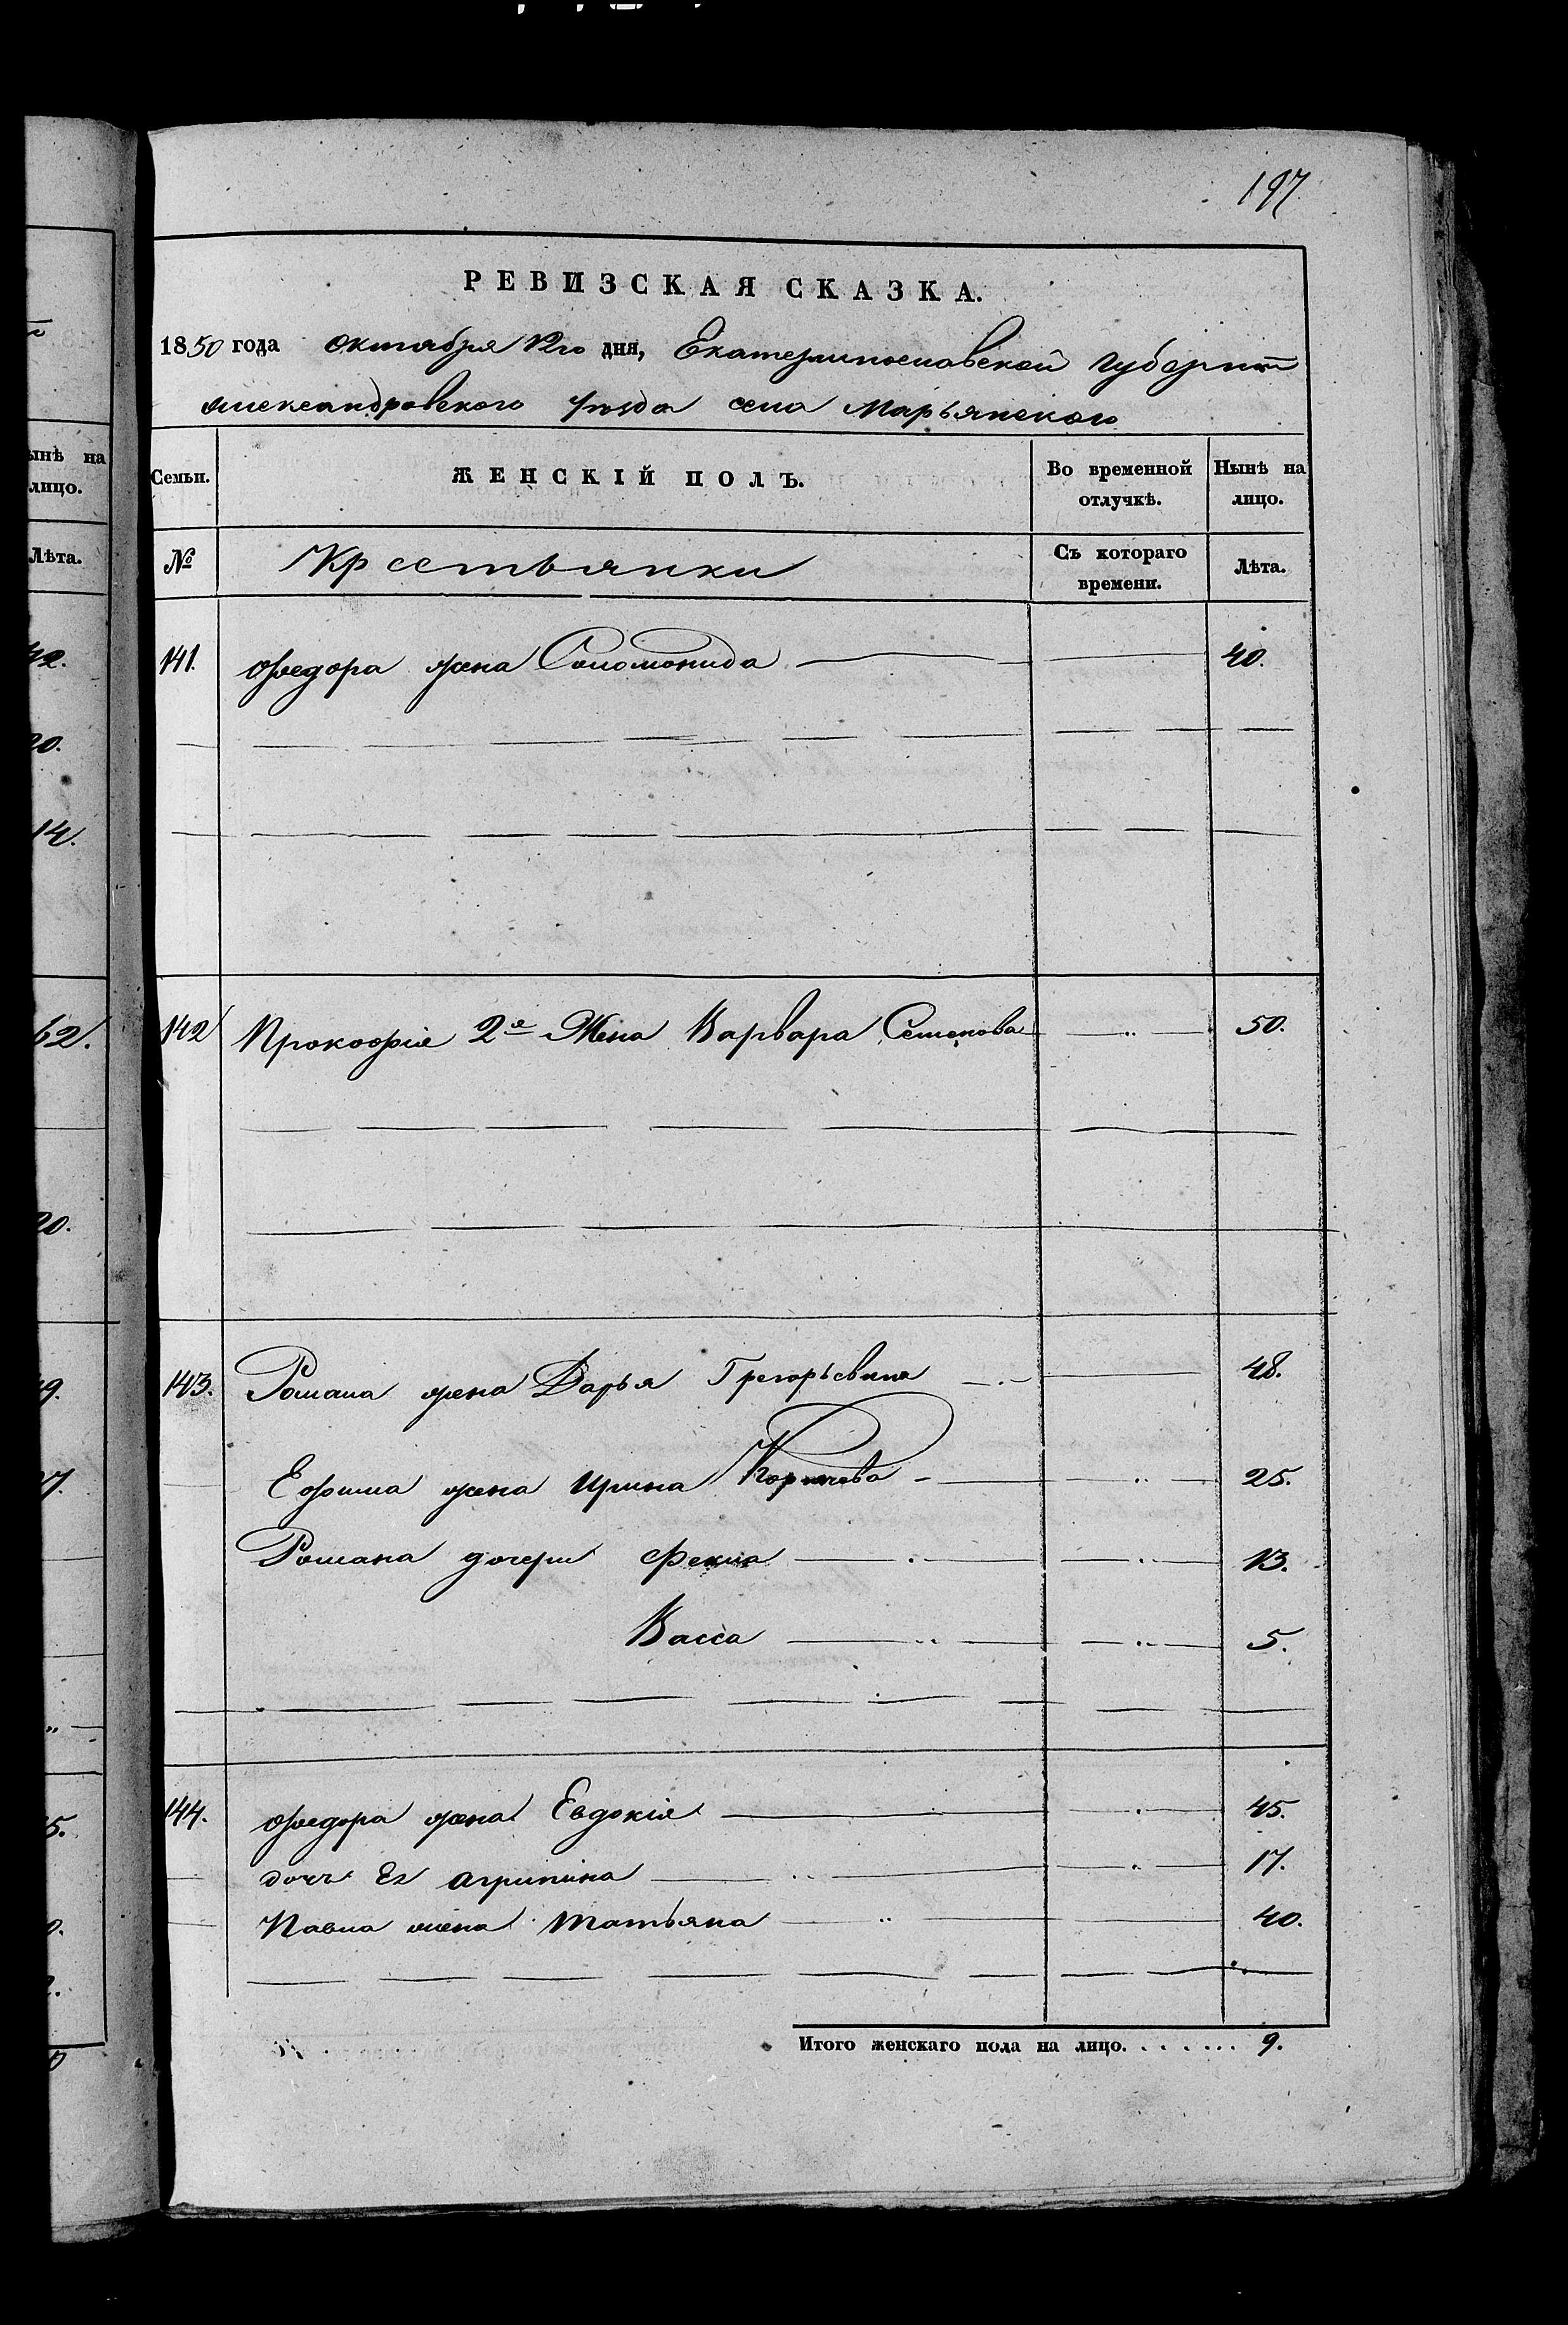 197
РЕВИЗСКАЯ СКАЗКА.
1850 года октября 12го дня, Екатеринославской губерніи
Александровского уѣзда села Марьянского
Семьи. ЖЕНСКІЙ ПОЛЪ. Во временной отлучкѣ. Нынѣ на лицо.
№ Крестьянки Съ котораго времени. Лѣта.
141. Федора жена Соломонида 40.
142 Прокофія 2я Жена Варвара Семенова 50.
143. Романа жена Дарья Григорьевна 48.
Ефима жена Ирина 25.
Романа дочери Фекла 13.
Васса 5.
144. Федора жена Евдокія 45.
дочь Ея Агрипина 17.
Павла жена Татьяна 40.
Итого женскаго пола на лицо. 9.
ынѣ на
лицо.
Лѣта.
42.
20.
14.
62.